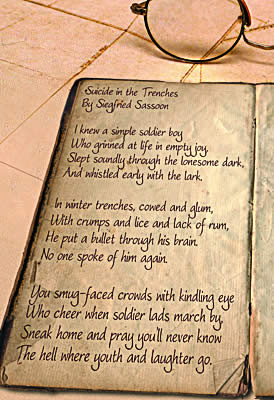 Suicide in the Trenches
By Siegfried Sassoon
I knew a simple soldier boy
Who grinned at life in empty joy,
Slept soundly through the lonesome dark,
And whistled early with the lark.
In winter trenches, cowed and glum,
With crumps and lice and lack of rum,
He put a bullet through his brain.
No one spoke of him again.
You smug-faced crowds with kindling eye
Who cheer when soldier lads march by,
Sneak home and pray you'll never know
The hell where youth and laughter go.